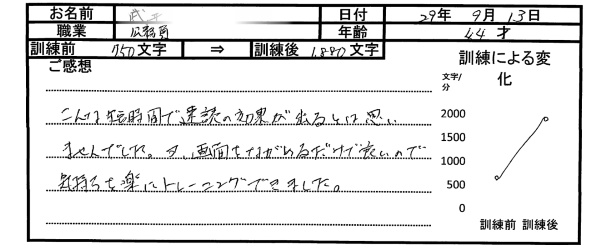 お名前 武 日付 29年 9月 13日
職業 公務員 年齢 44 才
訓練前 750文字 ⇒ 訓練後 1,880文字
ご感想
こんな短時間で速読の効果が出るとは思い
ませんでした。又、画面をながめるだけで良いので
気持ちも楽にトレーニングできました。
訓練による変
化
文字/
分
2000
1500
1000
500
0
訓練前 訓練後